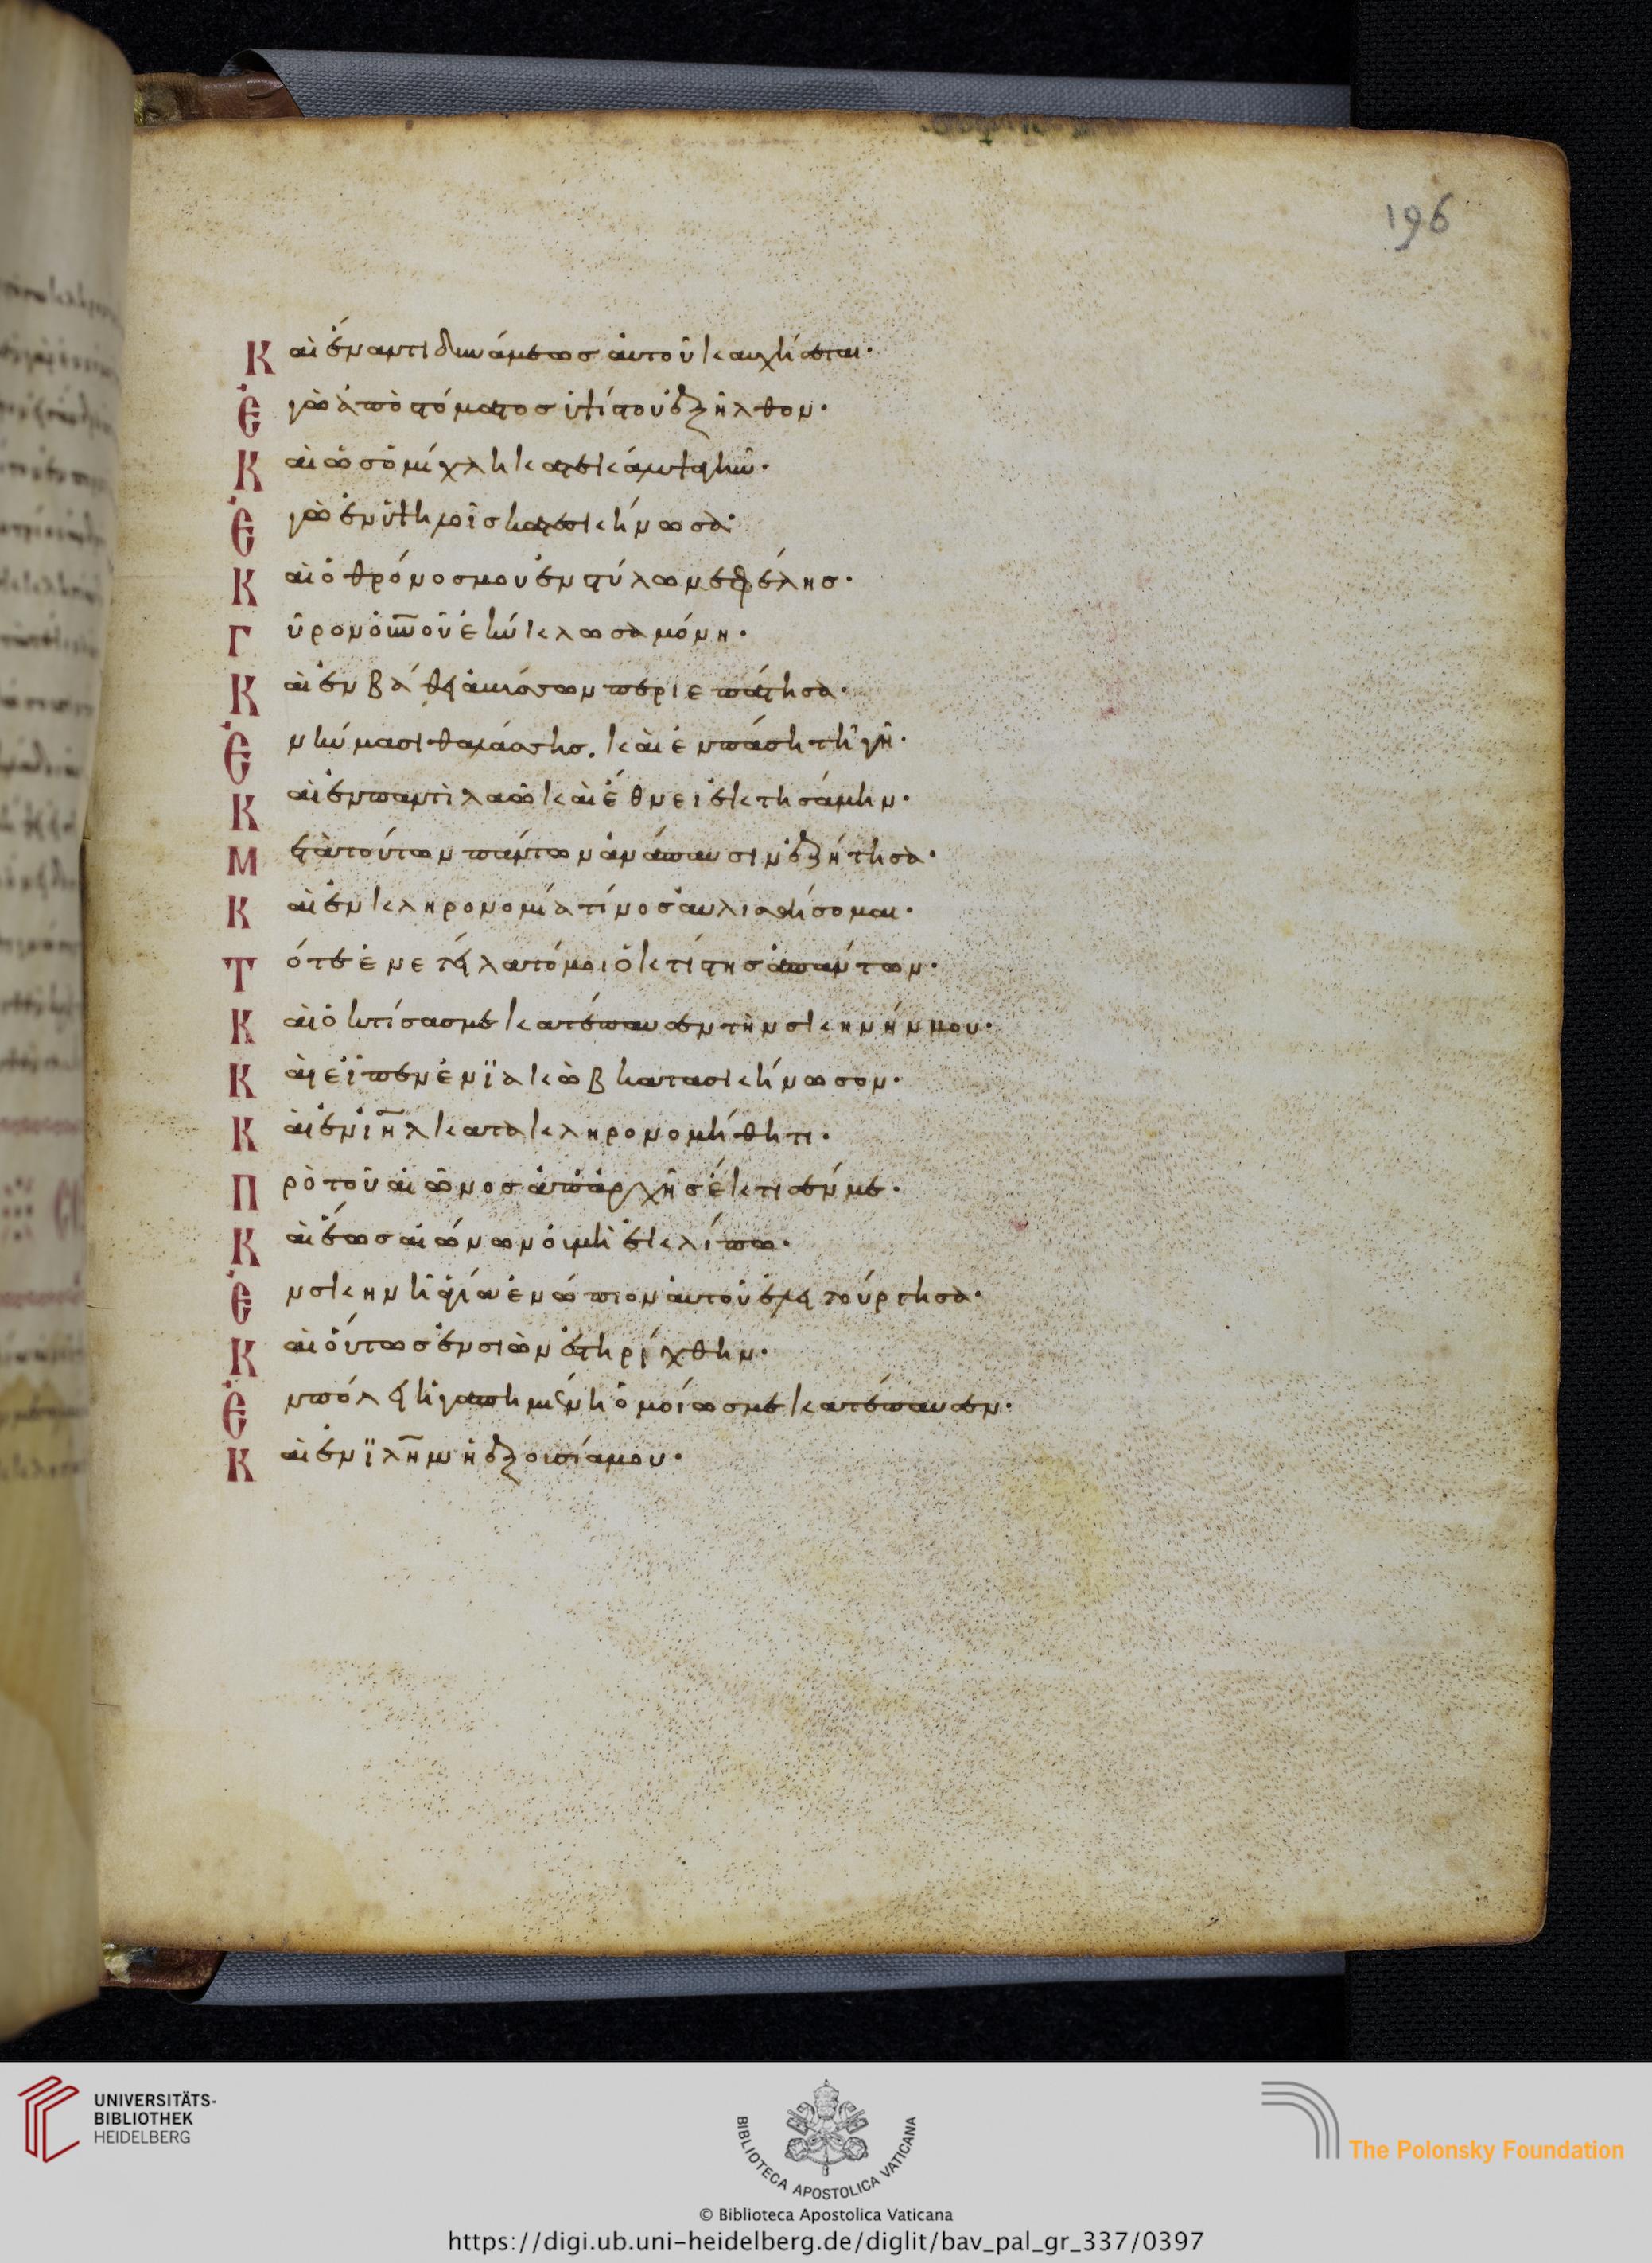 196
Καὶ ἔναντι δυνάμεως αὐτοῦ καυχήσεται·
Ἐγὼ ἀπὸ στόματος ὑψίστου ἐξῆλθον·
Καὶ ὡς ὁμίχλη κατεκάλυψα γῆν·
Ἐγὼ ἐν ὑψηλοῖς κατεσκήνωσα·
Καὶ ὁ θρόνος μου ἐν στύλω νεφέλης·
Γῦρον οὐνοῦ ἐκύκλωσα μόνη·
Καὶ ἐν βάθει ἀβύσσων περιεπάτησα·
Ἐν κύμασι θαλάσσης. καὶ ἐν πάση τῆ γῆ·
Καὶ ἐν παντὶ λαῶ καὶ ἔθνει ἐκτησάμην·
Μετὰ τούτων πάντων ἀνάπαυσιν ἐζήτησα·
Καὶ ἐν κληρονομία τίνος αὐλισθήσομαι·
Τότε ἐνετείλατό μοι ὁ κτίστης ἁπάντων·
Καὶ ὁ κτίσας με κατέπαυσεν τὴν σκηνήν μου·
Καὶ εἶπεν ἐν ϊακὼβ κατασκήνωσον·
Καὶ ἐν ιηλ κατακληρονομήθητι·
Πρὸ τοῦ αἰῶνος ἀπ ἀρχῆς ἔκτισέν με·
Καὶ ἕως αἰώνων οὐ μὴ ἐκλίπω·
Ἐν σκηνῆ ἁγία ἐνώπιον αὐτοῦ ἐλειτούργησα·
Καὶ οὕτως ἐν σιὼν ἐστηρίχθην·
Ἐν πόλει ἠγαπημένη ὁμοίως με κατέπαυσεν·
Καὶ ἐν ϊλημ ἡ ἐξουσία μου·
UNIVERSITÄTS-
BIBLIOTHEK
HEIDELBERG
BIBLIOTECA APOSTOLICA VATICANA
The Polonsky Foundation
© Biblioteca Apostolica Vaticana
https://digi.ub.uni-heidelberg.de/diglit/bav_pal_gr_337/0397